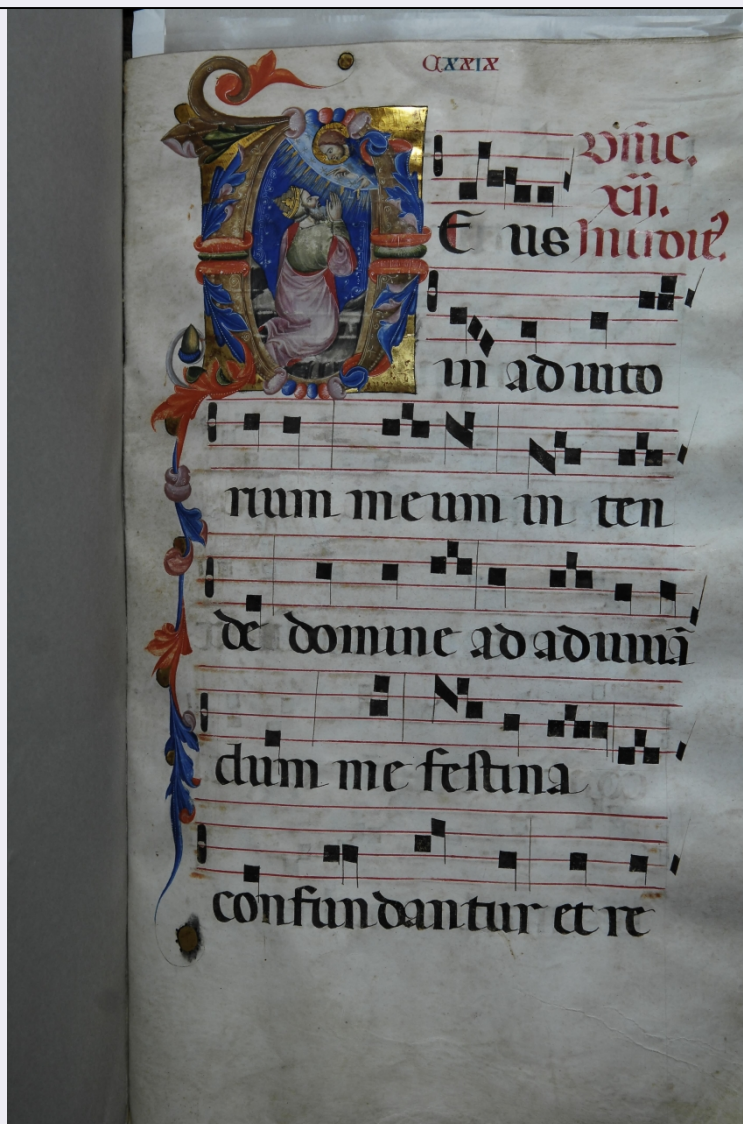 CXXIX
Dñica.
xii.
DEus Introit9
in adiuto
rium meum in ten
de domine ad adiuuã
dum me festina
confundantur et re